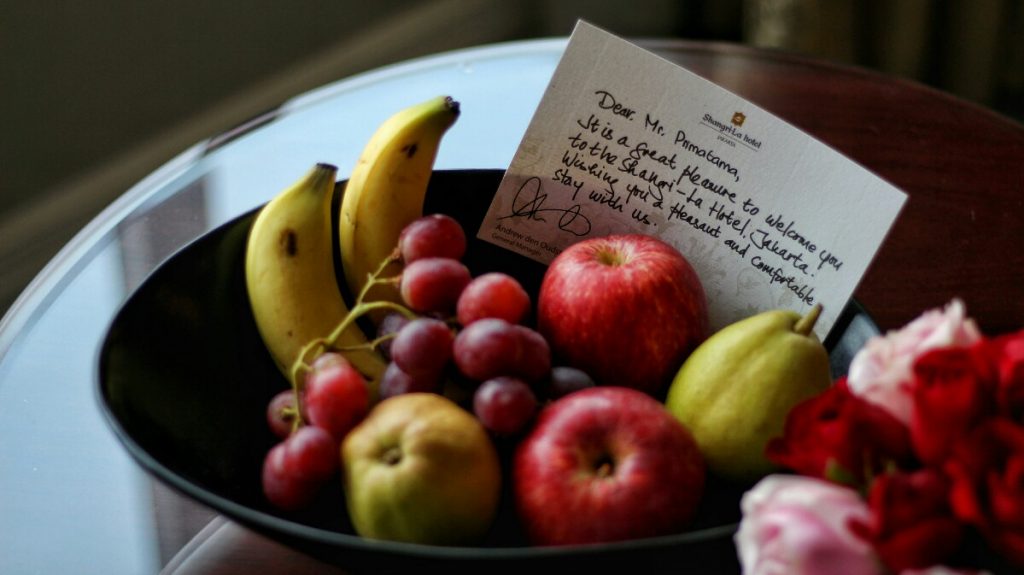 Shangri-La hotel
JAKARTA
Dear Mr. Primatama,
It is a great pleasure to welcome you
to the Shangri-La Hotel, Jakarta.
Wishing you a pleasant and comfortable
stay with us.
Andrew den Oude
General Manager